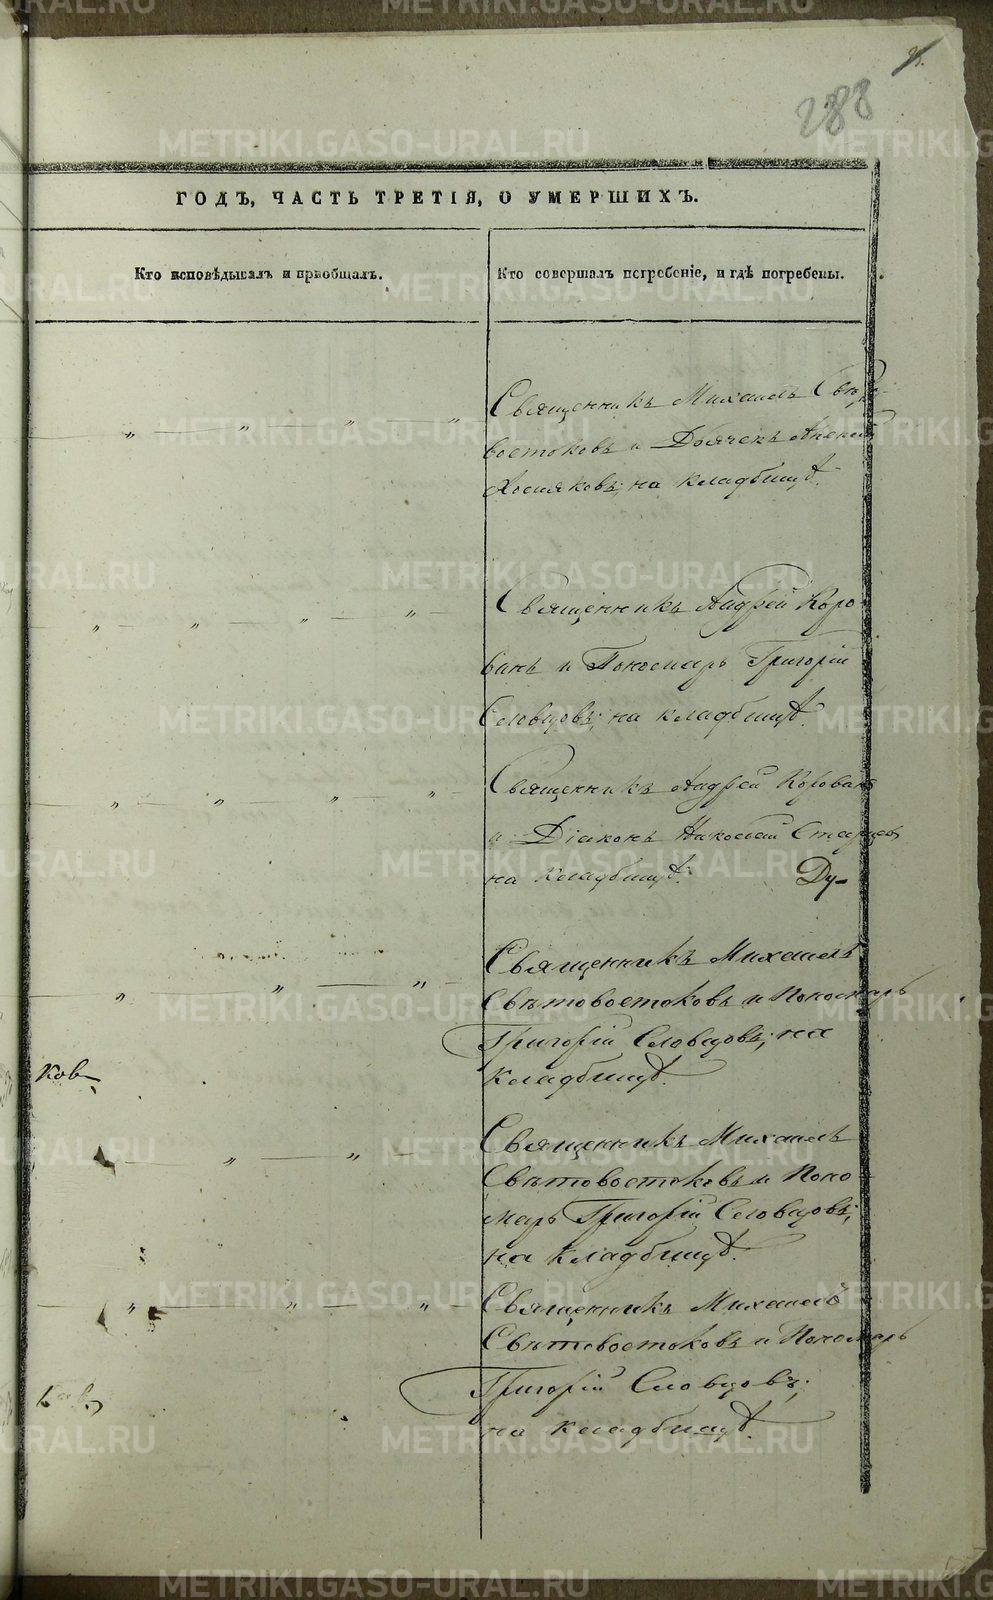 288
ГОДЪ, ЧАСТЬ ТРЕТІЯ, О УМЕРШИХЪ.
Кто исповѣдывалъ и приобщалъ.
Кто совершалъ погребеніе, и гдѣ погребены.
Священникъ Михаилъ Свѣто-
востоковъ и Дьячекъ
Хосняковъ; на кладбищѣ.
Священникъ Андрей Коро
ванъ и Пономарь Григорій
Словцовъ; на кладбищѣ.
Священникъ Андрей Корованъ
и Діаконъ Николай Старцевъ
на кладбищѣ. Ду-
Священникъ Михаилъ
Свѣтовостоковъ и Пономарь
Григорій Словцовъ; на
кладбищѣ.
ков
Священникъ Михаилъ
Свѣтовостоковъ и Поно
марь Григорій Словцовъ;
на кладбищѣ.
Священникъ Михаилъ
Свѣтовостоковъ и Пономарь
Григорій Словцовъ;
на кладбищѣ.
METRIKI.GASO-URAL.RU